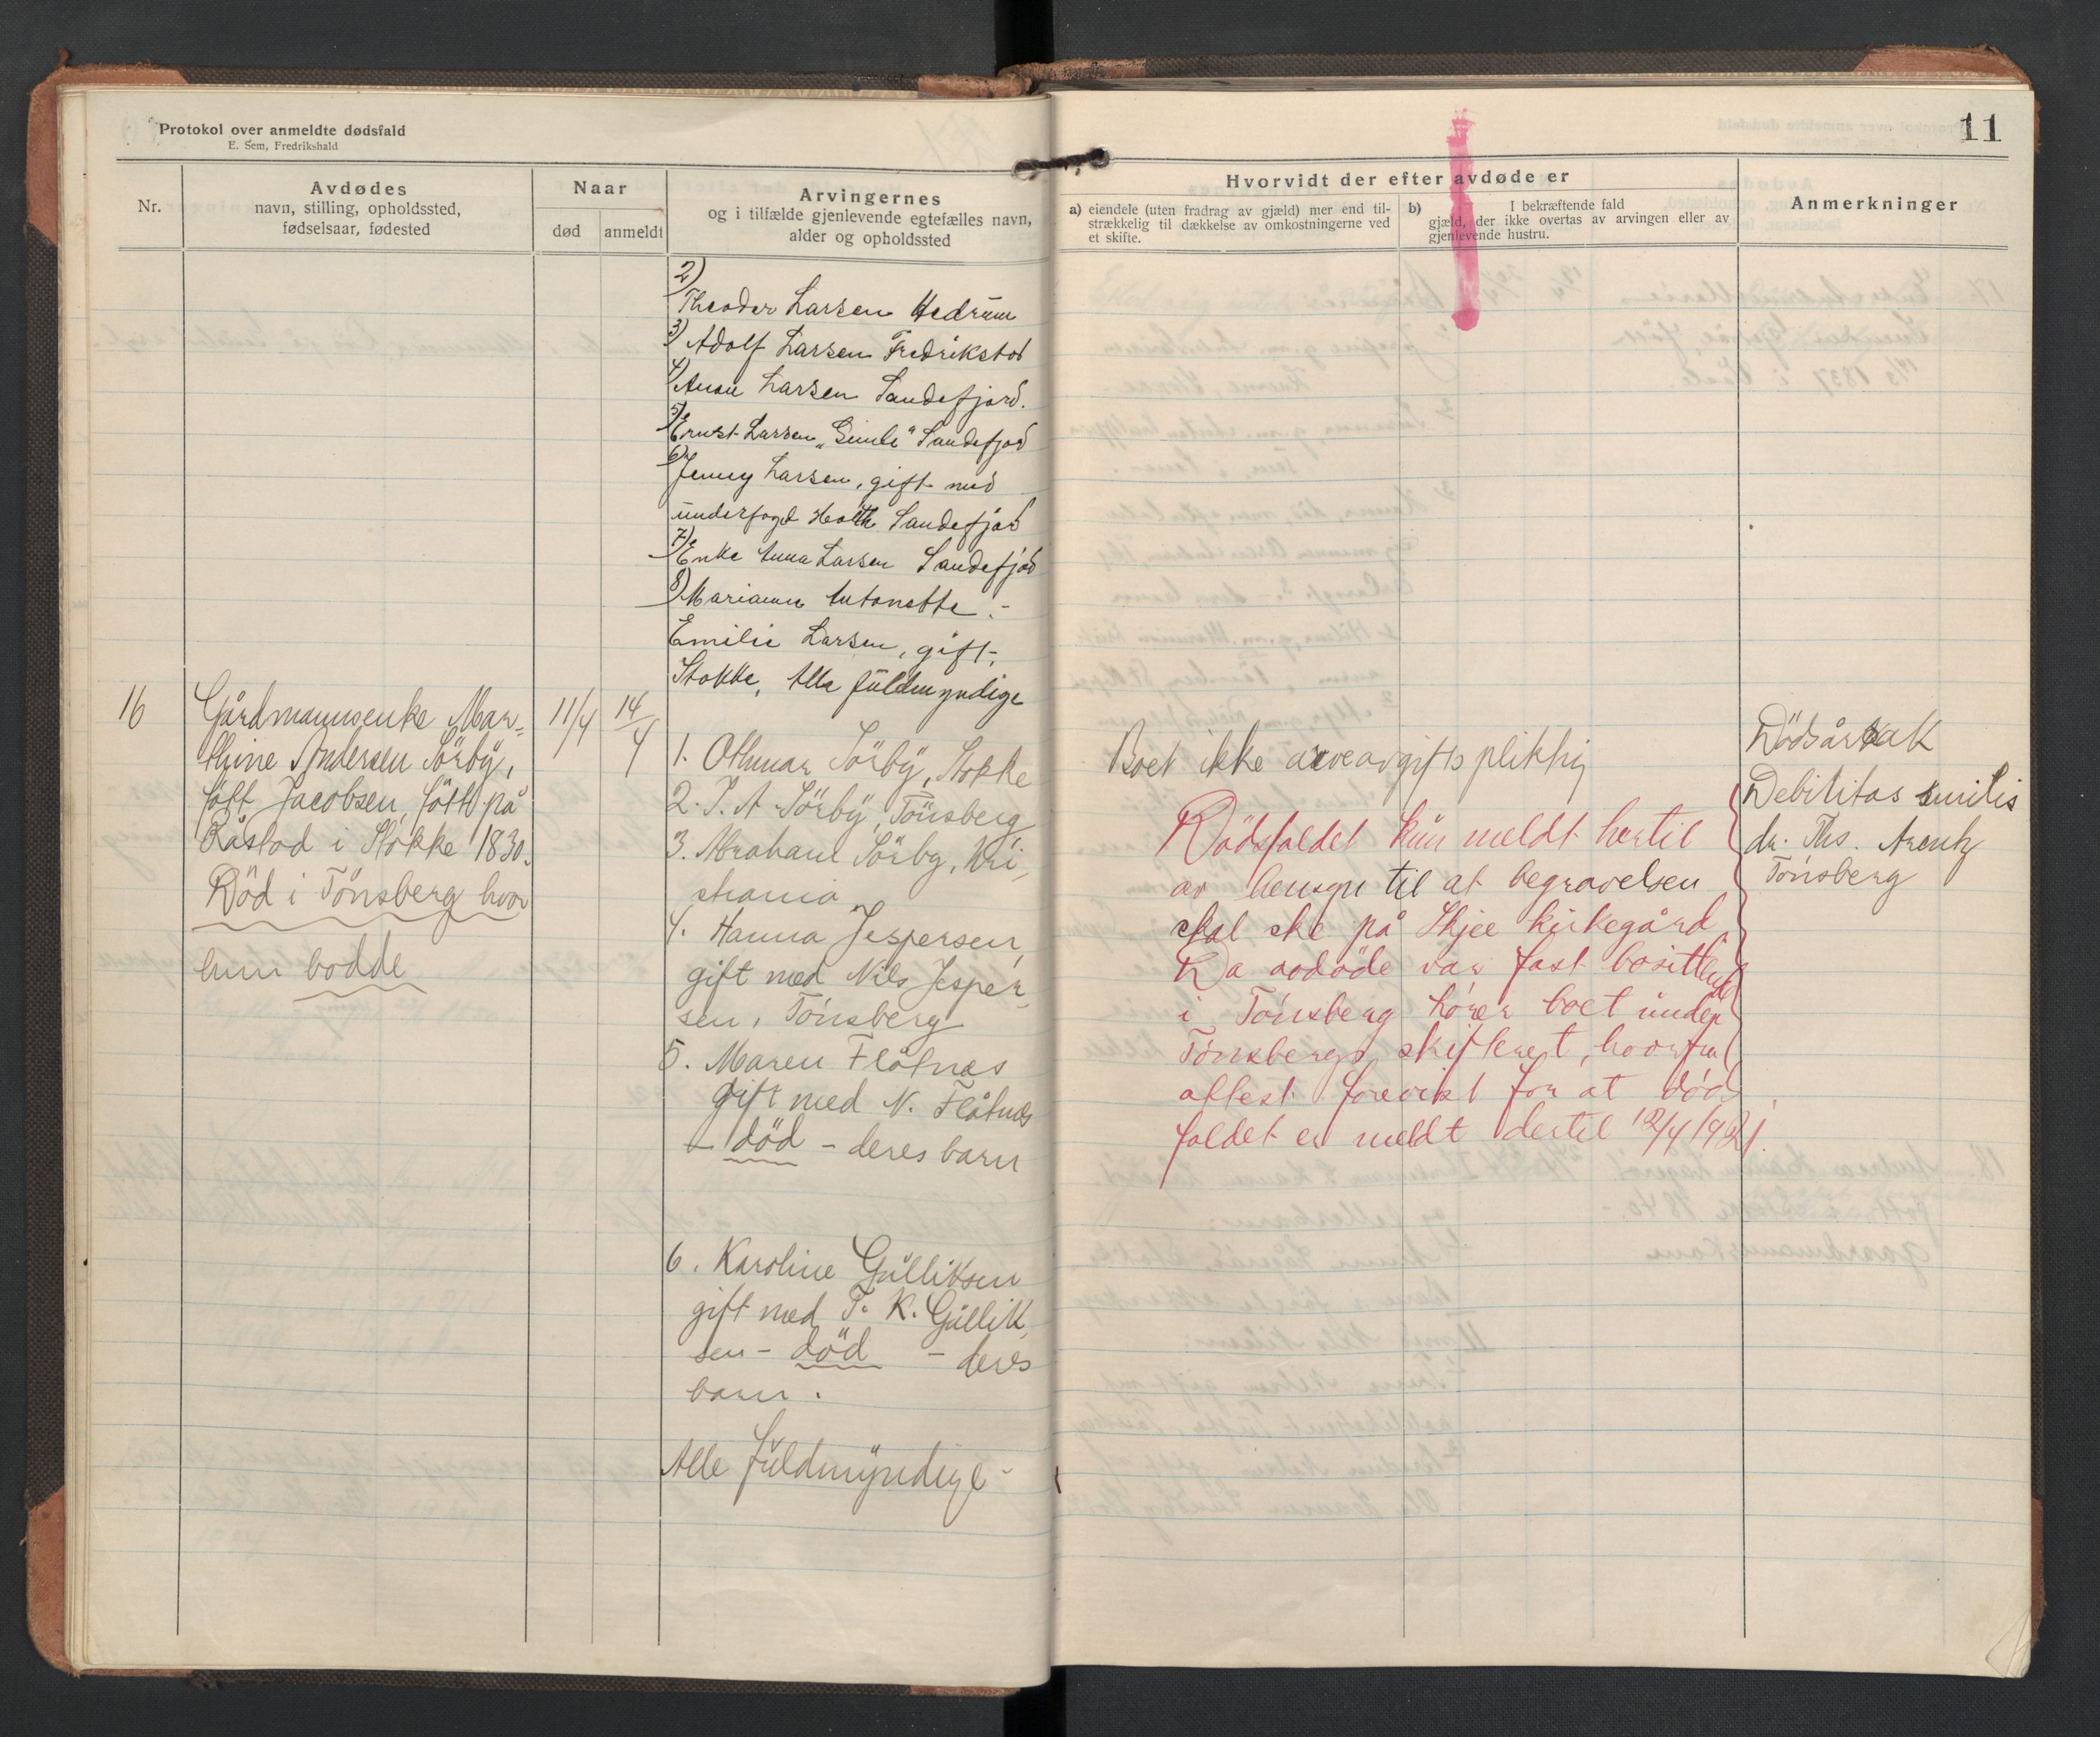 Protokol over anmeldte dødsfald
E. Sem, Fredrikshald
Nr.
Avdødes
navn, stilling, opholdssted,
fødselsaar, fødested
Naar
død
anmeldt
Arvingernes
og i tilfælde gjenlevende egtefælles navn,
alder og opholdssted
2)
Theodor Larsen Hedrum
3) Adolf Larsen Fredrikstad
4) Anna Larsen Sandefjord.
5) Ernst Larsen „Gimle" Sandefjord
6) Jenny Larsen, gift med
underfogd Holth Sandefjord
7) Enke Anna Larsen Sandefjord
8) Marianne Antonette -
Emilie Larsen, gift,
Stokke, Alle fuldmyndige
16
Gårdmannsenke Mar-
thine Andersen Sörby,
född Jacobsen, född på
Råstad i Stokke 1830.
Död i Tönsberg hvor
hun bodde
11/4
14/4
1. Othmar Sörby, Stokke
2. J. A. Sörby, Tönsberg
3. Abraham Sörby, Kri-
stiania
4. Hanna Jespersen,
gift med Nils Jesper-
sen, Tönsberg
5. Maren Flåtnes
gift med N. Flåtnes
- död - deres barn
6. Karoline Gulliksen
gift med T. K. Gullik-
sen - död - deres
barn.
Alle fuldmyndige -
11
Hvorvidt der efter avdøde er
a) eiendele (uten fradrag av gjæld) mer end til-
strækkelig til dækkelse av omkostningerne ved
et skifte.
b) I bekræftende fald
gjæld, der ikke overtas av arvingen eller av
gjenlevende hustru.
Anmerkninger
Boet ikke arveavgiftspliktig
Dödsfaldet kun meldt hertil
av hensyn til at begravelsen
skal ske på Skjee kirkegård
Da avdöde var fast bosittende
i Tönsberg hörer boet under
Tönsbergs skifterett, hvorfra
attest forevist for at döds
faldet er meldt dertil 12/4 1921.
Dödsårsak
Debilitas senilis
dr. Ths. Arentz
Tönsberg